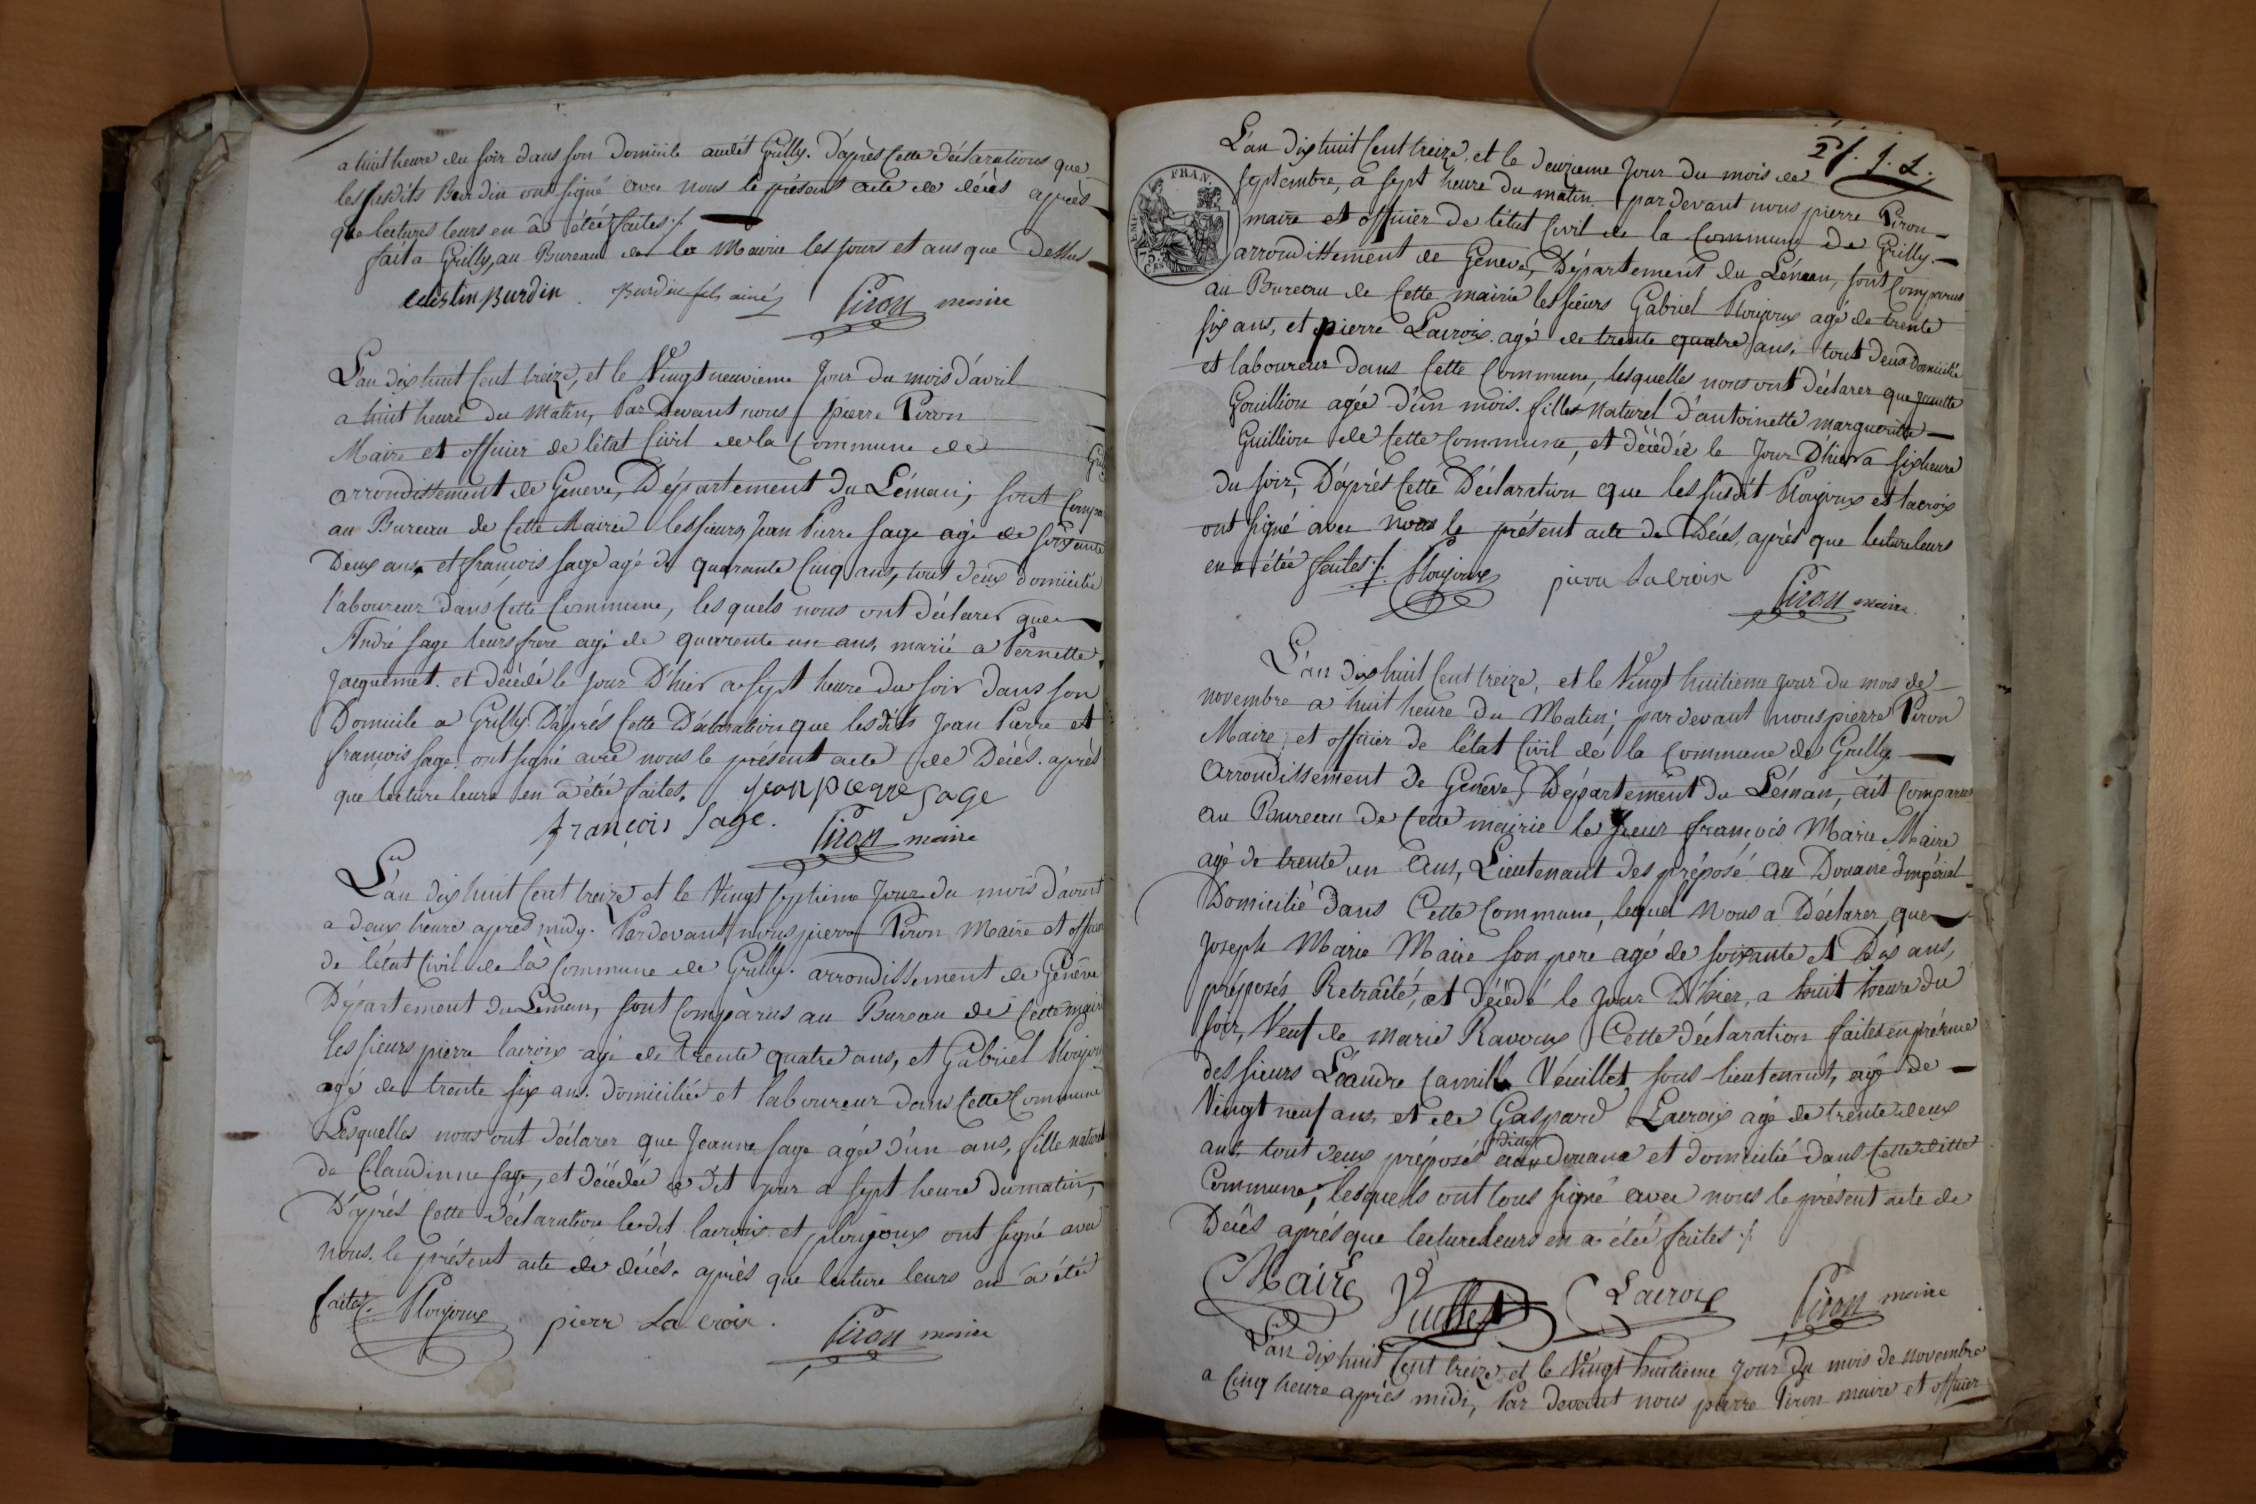 a huit heure du soir dans son domicile audit Grilly. D'après cette déclarations que
les susdits Burdin ont signé avec nous le présent acte de décès après
que lectures leurs en à étéé faites ./.
fait a Grilly, au Bureau de la Mairie les jours et ans que Dessus
Celestin Burdin Burdin fils ainé Piron maire
L'an dix huit cent treize, et le Vingt neuvieme Jour du mois d'avril
a huit heure du Matin, Par Devant nous pierre Piron
Maire et officier de l'état Civil de la Commune de
arrondissement de Geneve, Département du Léman, sont Compa
au Bureau de Cette Mairie les sieurs Jean Pierre Sage agé de soixante
Deux ans, et françois sage agé de quarante Cinq ans, tout deux domicilié
l'aboureur dans Cette Commune, les quels nous ont déclarer que
André sage leurs frere agé de quarente un ans, marié a Pernette
Jacquemet. et décédé le jour D'hier a sept heure du soir dans son
Domicile a Grilly. D'après Cette Déclaration que lesdits Jean Pierre et
françois sage. ont signé avec nous le présent acte de Décès. après
que lecture leurs en à étéé faites. Jean pierre sage
françois sage. Piron maire
L'an dix huit Cent treize et le Vingt septieme Jour du mois d'aoust
a deux heure après midy. Pardevant nous pierre Piron Maire et officier
de l'état Civil de là Commune de Grilly. arrondissement de Genêve
Département du Leman, sont Comparus au Bureau de Cette mairie
les sieurs pierre lacroix agé de trente quatre ans, et Gabriel
agé de trente six ans. domicilié et laboureur dans Cette Commune
Lesquelles nous ont déclarer que Jeanne sage agée d'un ans, fille naturel
de Claudinne sage, et décédée ce Dit jour a sept heure du matin,
D'après Cette déclaration lesdit lacroix et plonjoux ont signé avec
nous. le présent acte de décés. après que lecture leurs en à étéé
faites. Plonjoux pierr la croix. Piron maire
2 f. J. L.
L'an dix huit Cent treize, et le deuxieme Jour du mois de
septembre, a sept heure du matin. pardevant nous pierre Piron
maire et officier de l'état Civil de la Commune de Grilly.
arrondissement de Geneve, Département du Léman, sont Comparus
au Bureau de Cette mairie les sieurs Gabriel Plonjoux agé de trente
six ans, et pierre Lacroix agé de trente quatre ans, tout deux Domicilié
et laboureur dans Cette Commune, lesquelles nous ont déclarer que
Gouillion agée d'un mois. filles Naturel d'antoinette margueritte
Guillion de Cette Commune, et décédée le Jour D'hier a six heure
du soir, D'après Cette Déclaration que les susdit Plonjoux et lacroix
ont signé avec nous le présent acte de Décès, après que lecture leurs
en a étéé faites ./. Plonjoux pierre la croix Piron maire
L'an dix huit Cent treize, et le Vingt huitieme Jour du mois de
novembre a huit heure du Matin; par devant nous pierre Piron
Maire, et officier de l'état Civil de la Commune de Grilly
arrondissement de Genève, Département du Léman, ait Comparus
au Bureau de Cette mairie le sieur françois Marie Maire
agé de trente un ans, Lieutenant des préposé au Douane Impérial
Domicilié dans Cette Commune, lequel Nous a Déclarer que
Joseph Marie Maire son pere agé de soixante et Dix ans,
préposés Retraité, et décédé le Jour D'hier, a huit heure du
soir, Veuf de Marie Ravoux Cette déclaration faites en présence
des sieurs Léandre Camille Veuillet sous-lieutenant, agé de
Vingt neuf ans, et de Gaspard Lacroix agé de trente deux
ans, tout deux préposés dittes Douane et domicilié dans Cette ditte
Commune, lesquels ont tous signé avec nous le présent acte de
Décès après que lecture leurs en a étéé faites ./.
Maire Vuillet Lacroix Piron maire
L'an dix huit Cent treize, et le Vingt huitieme Jour du mois de novembre
a Cinq heure après midi, Par devant nous pierre Piron maire et officier